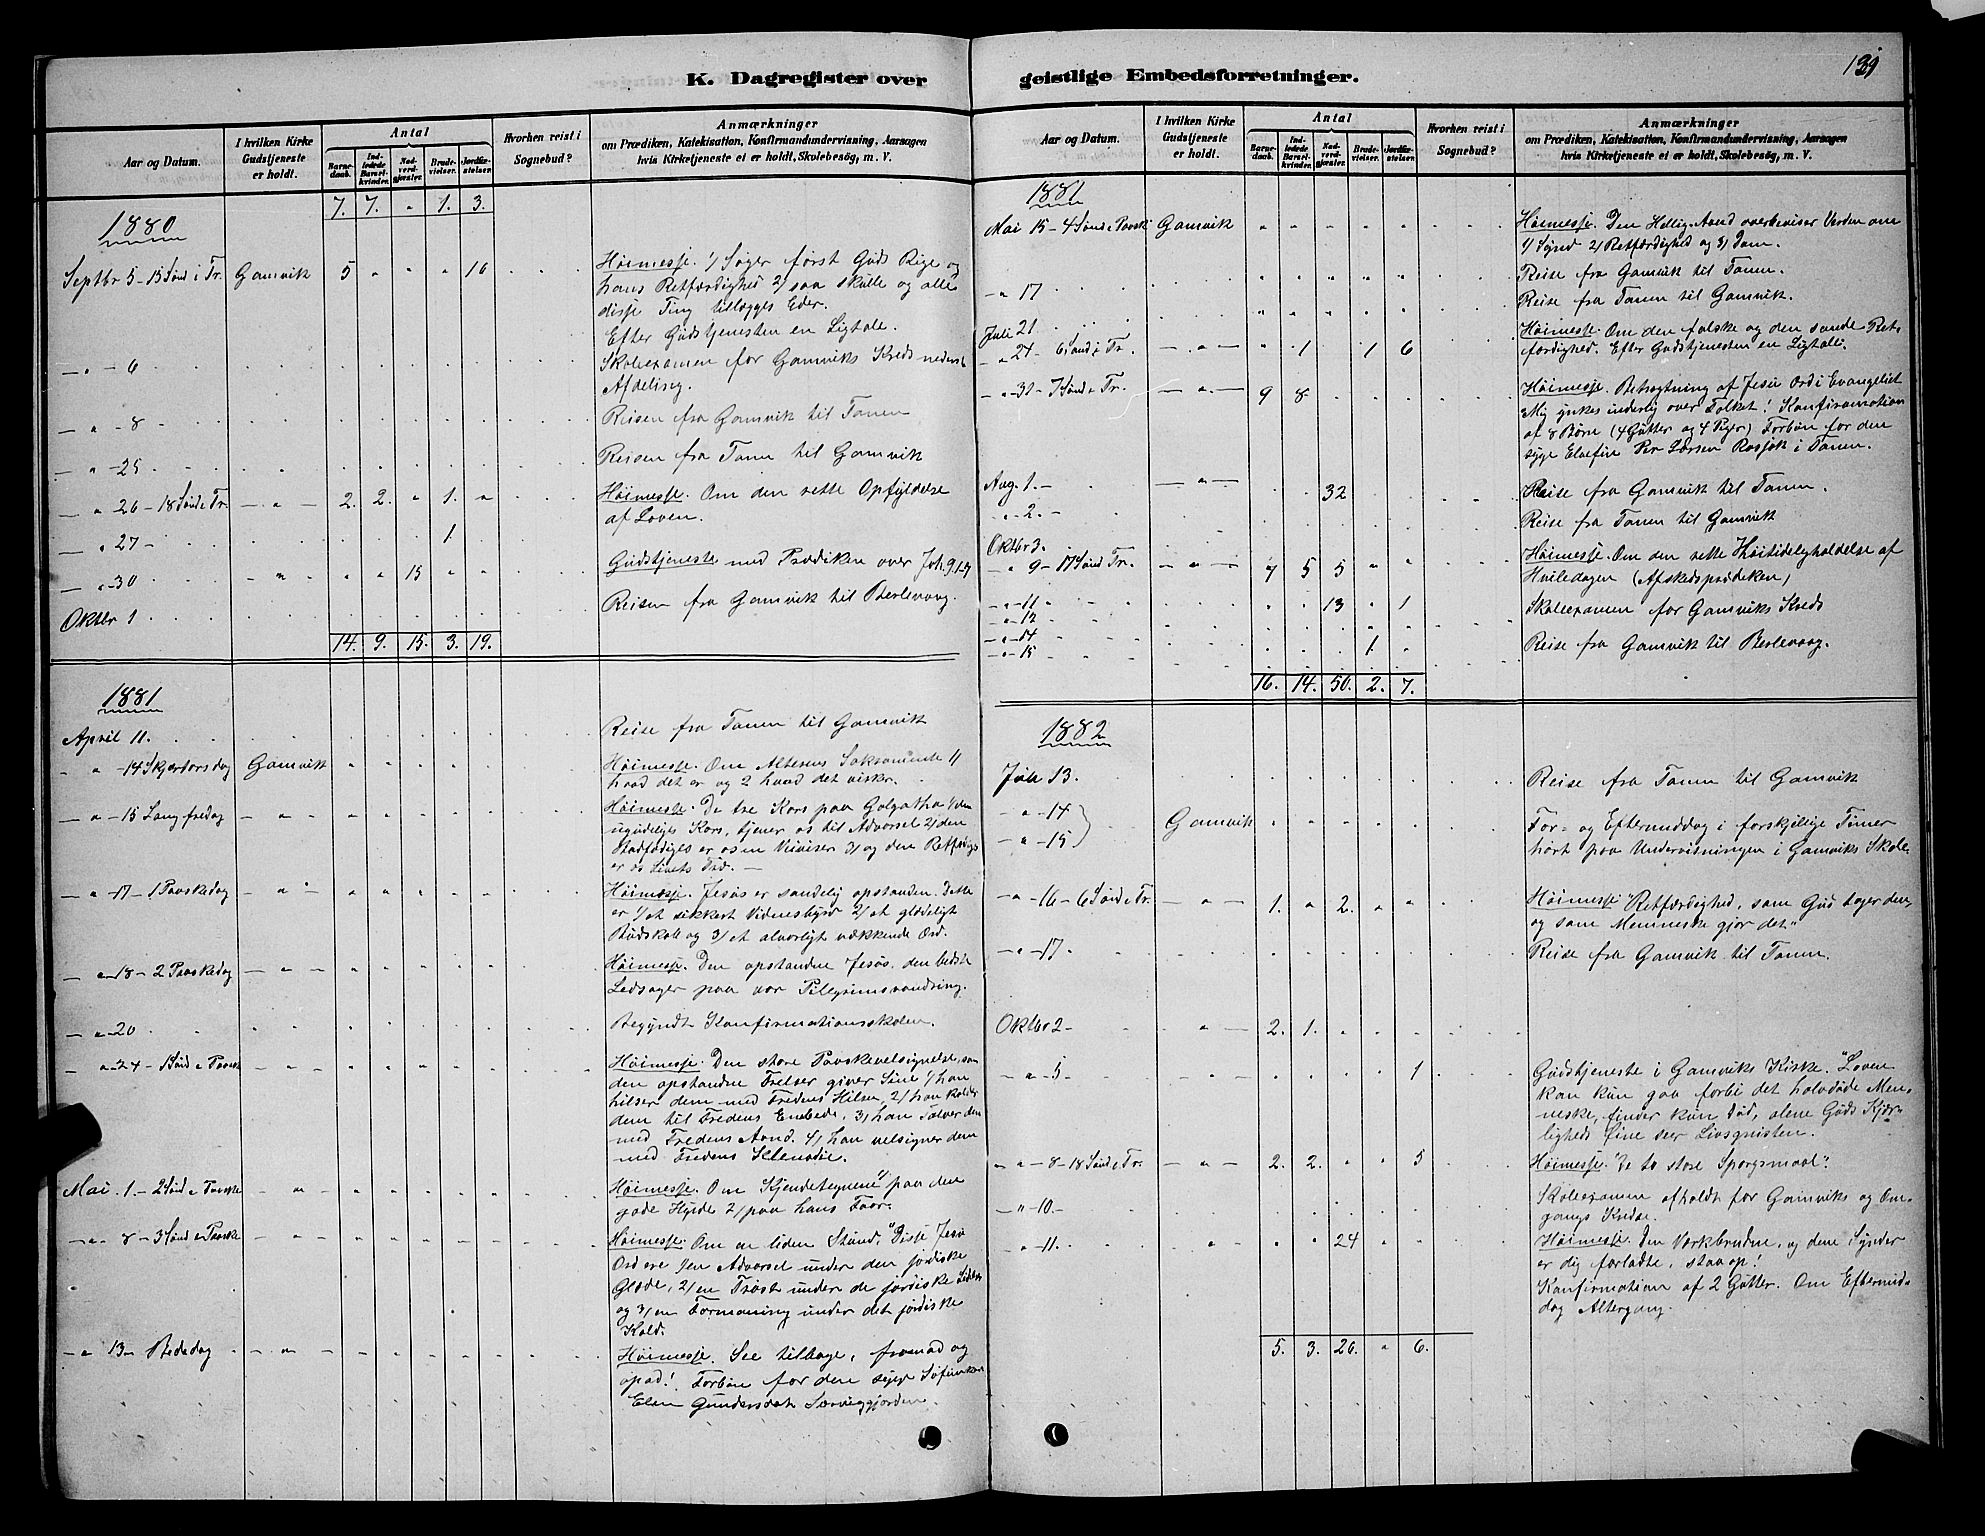 K. Dagregister over
Aar og Datum.
I hvilken Kirke Gudstjeneste er holdt.
Antal
Barnedaab.
Indledede Barselkvinder.
Nadverdgjæster.
Brudevielser.
Jordfæstelser.
Hvorhen reist i Sognebud?
Anmærkninger
om Prædiken, Katekisation, Konfirmandundervisning, Aarsagen
hvis Kirketjeneste ei er holdt, Skolebesøg, m. V.
7. 7. " 1. 3.
1880
Septbr 5 - 15 Sønd i Tr. Gamvik 5 " " " 16 Høimesse. 1/ Søger først Guds Rige og
hans Retfærdighed 2/ saa skulle og alle
disse Ting tillægges Eder.
Efter Gudstjenesten en Ligtale.
— " — 6 Skoleexamen for Gamviks Kreds nederste
Afdeling.
— " — 8 Reisen fra Gamvik til Tanen
— " — 25 Reisen fra Tanen til Gamvik
— " 26 - 18 Sønd e Tr. — " — 2. 2. " 1. " Høimesse. Om den rette Opfyldelse
af Loven.
— " 27 - 1
— " 30 " " " 15 " " Gudstjeneste med Prædiken over Joh. 9.1-7
Oktbr 1 Reisen fra Gamvik til Berlevaag.
14. 9. 15. 3. 19.
1881
April 11. Reise fra Tanen til Gamvik
— " — 14 Skjærtorsdag Gamvik Høimesse. Om Alterens Sakramente 1/
hvad det er og 2 hvad det virker.
— " — 15 Langfredag — " — Høimesse. De tre Kors paa Golgatha 1/ den
ugudeliges Kors, tjener os til Advarsel 2/ den
Bodfærdiges er os en Veiviser 3/ og den Retfærdiges
er os Livets Træ. —
— " — 17 - 1 Paaskedag — " — Høimesse. Jesus er sandelig opstanden. Dette
er 1/ et sikkert Vidnesbyrd 2/ et glædeligt
Budskab og 3/ et alvorligt vækkende Ord.
— " — 18 - 2 Paaskedag — " — Høimesse. Den opstandne Jesus den bedste
Ledsager paa vor Pilegrimsvandring.
— " — 20 Begyndt Konfirmationsskolen.
— " — 24 - 1 Sønd e Paaske — " — Høimesse. Den store Paaskevelsignelse, som
den opstandne Frelser giver Sine 1/ han
hilser dem med Fredens Hilsen, 2/ han kalder
dem til Fredens Embede, 3/ han salver dem
med Fredens Aand. 4/ han velsigner dem
med Fredens Klenodie.
Mai. 1 - 2 Sønd e Paaske — " — Høimesse. Om Kjendetegnene 1/ paa den
gode Hyrde 2/ paa hans Faar.
— " 8 - 3 Sønd e Paaske — " — Høimesse. Om en liden Stund." Disse Jesu
Ord ere 1/ en Advarsel under den jordiske
Glæde, 2/ en Trøst under de jordiske Lidelser
og 3/ en Formaning under det jordiske
Kald.
— " 13 - Bededag — " — Høimesse. See tilbage, fremad og
opad! Forbøn for den syge Søfinkone
Elen Gundersdatr
geistlige Embedsforretninger.
139
Aar og Datum.
I hvilken Kirke Gudstjeneste er holdt.
Antal
Barnedaab.
Indledede Barselkvinder.
Nadverdgjæster.
Brudevielser.
Jordfæstelser.
Hvorhen reist i Sognebud?
Anmærkninger
om Prædiken, Katekisation, Konfirmandundervisning, Aarsagen
hvis Kirketjeneste ei er holdt, Skolebesøg, m. V.
1881
Mai 15 - 4 Sønd e Paask Gamvik Høimesse. Den Hellig-Aand overbeviser Verden om
1/ Synd 2/ Retfærdighed og 3/ Dom.
— " 17 Reise fra Gamvik til Tanen.
Juli 21 Reise fra Tanen til Gamvik.
— " 24 - 6 Sønd e Tr. — " — " 1 1 6 Høimesse. Om den falske og den sande Ret-
færdighed. Efter Gudstjenesten en Ligtale.
— " 31 - 7 Sønd e Tr. — " — 9 8 Høimesse. Betragtning af Jesu Ord i Evangeliet
Mig ynkes inderlig over Folket! Konfirmation
af 8 Børn (4 Gutter og 4 Piger) Forbøn for den
syge Elvefin Per Larsen i Tanen.
Aug. 1. - — " — 32 Reise fra Gamvik til Tanen.
— " 2. -
Oktbr 3. Reise fra Tanen til Gamvik
— " 9 - 17 Sønd e Tr. — " — 7 5 5 " " Høimesse. Om den rette Høitideligholdelse af
Hviledagen (Afskedsprædiken)
— " 11 13 " 1 Skoleexamen for Gamviks Kreds
— " 12
— " 14 1
— " 15 Reise fra Gamvik til Berlevaag.
16. 14. 50. 2. 7.
1882
Juli 13. Reise fra Tanen til Gamvik
— " — 14 Gamvik For- og Eftermiddag i forskjellige Timer
— " — 15 hørt paa Undervisningen i Gamviks Skole.
— " — 16 - 6 Sønd e Tr. — " — 1. " 2. " " Høimesse "Retfærdighed, som Gud tager den,
og som Menneske gjør det"
— " — 17. Reise fra Gamvik til Tanen.
Oktbr 2 - " — 2. 1.
— " — 5 - " — 1 Gudstjeneste i Gamviks Kirke. "Loven
kan kun gaa forbi det halvdøde Men-
neske, finder kun Død, alene Guds Kjær-
ligheds Øine seer Livsgnisten.
— " — 8 - 18 Sønd e Tr. — " — 2. 2. " " 5 Høimesse. "De to store Spørgsmaal".
— " — 10. - Skoleexamen afholdt for Gamviks og Om-
gangs Kredse.
— " — 11. " — " " 24 " Høimesse. Den Værkbrudne, og dine Synder
er dig forladte, staa op!
Konfirmation af 2 Gutter. Om Eftermid-
dag Altergang.
5. 3. 26. " 6.